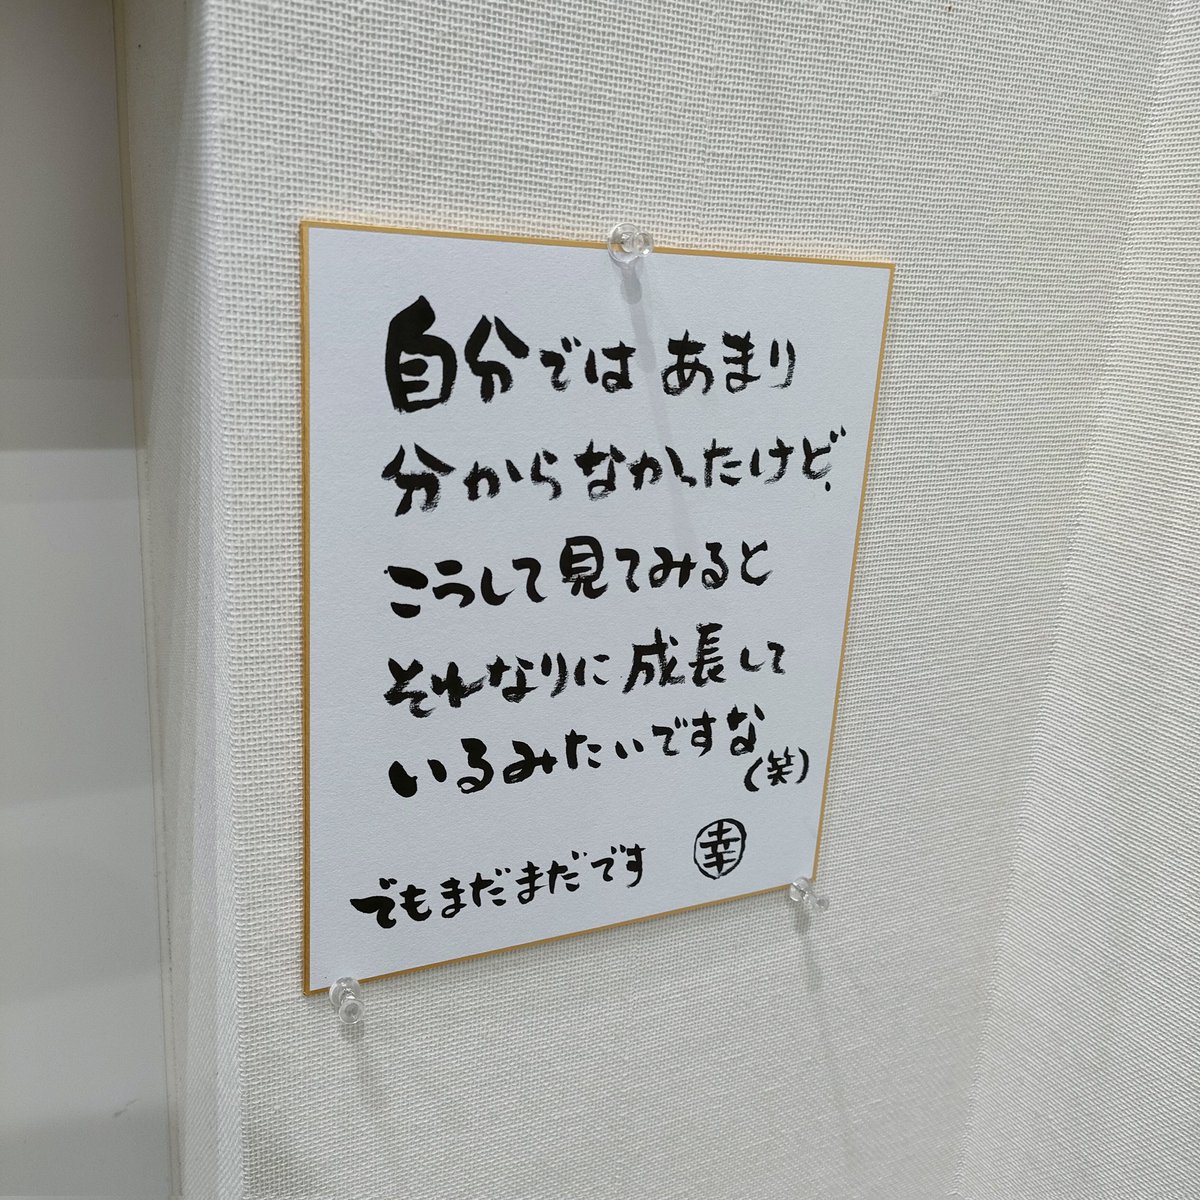 自分では あまり
分からなかったけど、
こうして見てみると
それなりに成長して
いるみたいですな
(笑)
でもまだまだです
幸